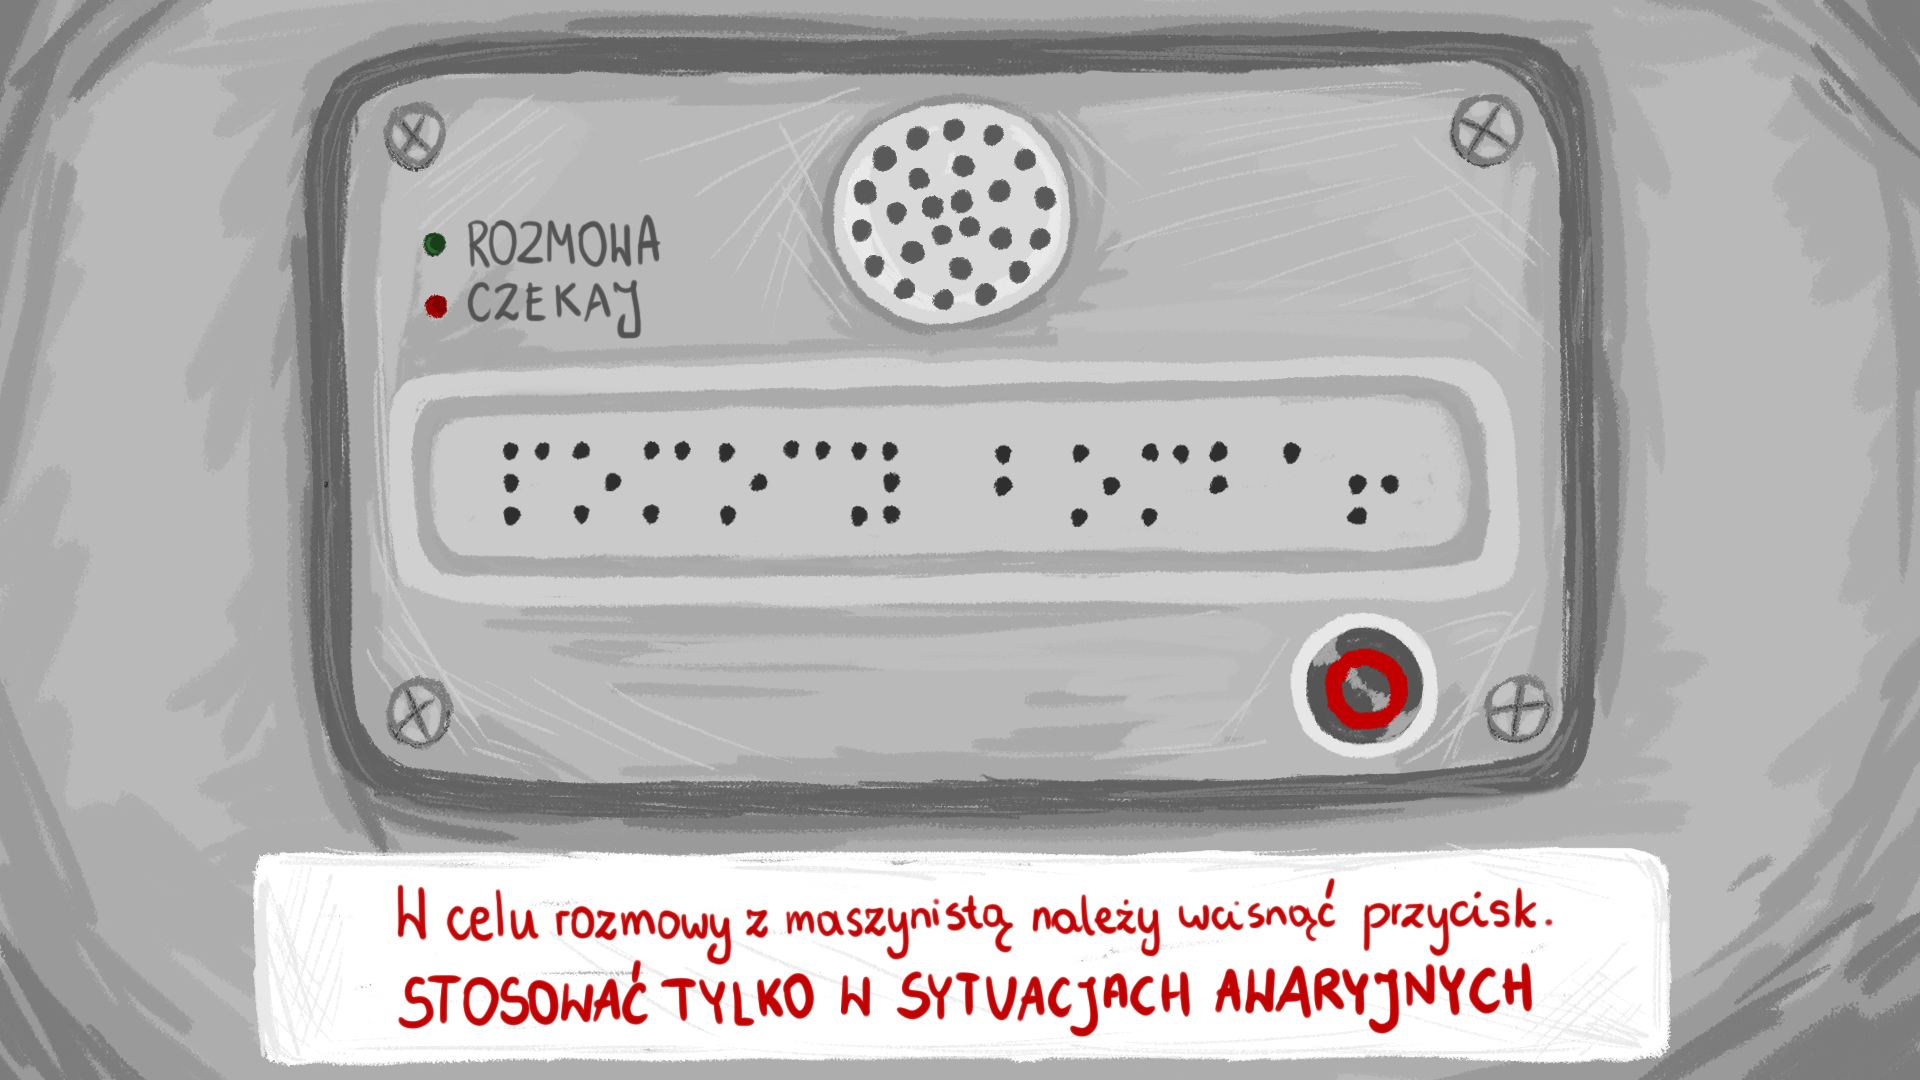 ROZMOWA
CZEKAJ
⠏⠕⠍⠕⠉⠽ ⠃⠕⠍⠃⠁⠖
W celu rozmowy z maszynistą należy wcisnąć przycisk.
STOSOWAĆ TYLKO W SYTUACJACH AWARYJNYCH